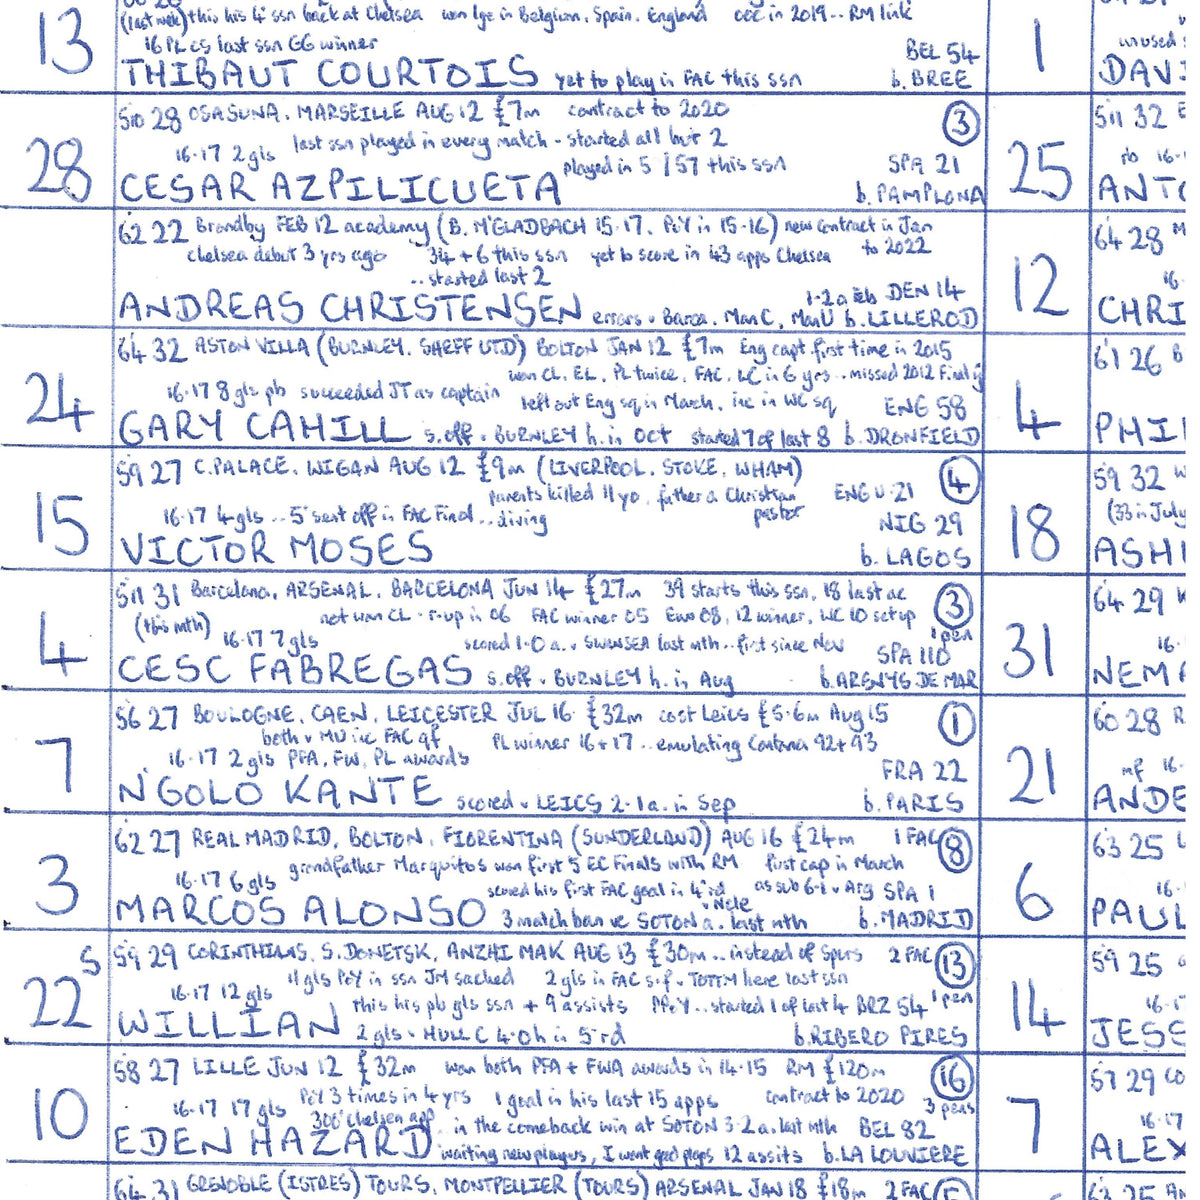 13 (last wk) this his 4th ssn back at Chelsea won lge in Belgium, Spain, England in 2019.. RM link 1
16 PL cs last ssn GG winner BEL 54
THIBAUT COURTOIS yet to play in FAC this ssn b. BREE DAVI
510 28 OSASUNA. MARSEILLE AUG 12 £7m contract to 2020 3 511 32
28 last ssn played in every match - started all but 2 25
16·17 2 gls played in 51/57 this ssn SPA 21
CESAR AZPILICUETA b. PAMPLONA ANTO
62 22 Brondby FEB 12 academy (B. M'GLADBACH 15·17. PoY in 15-16) new contract in Jan 64 28
Chelsea debut 3 yrs ago 34+6 this ssn yet to score in 43 apps Chelsea to 2022 12
.. started last 2
ANDREAS CHRISTENSEN errors v Barca. Man C, Man U DEN 14 b. LILLEROD CHRI
64 32 ASTON VILLA (BURNLEY. SHEFF UTD) BOLTON JAN 12 £7m Eng capt first time in 2015 61 26
24 won CL, EL, PL twice, FAC, LC in 6 yrs .. missed 2012 Final inj 4
16·17 8 gls pb succeeded JT as captain left out Eng sq in March, inc in WC sq ENG 58
GARY CAHILL s.off v BURNLEY h. in Oct started 7 of last 8 b. DRONFIELD PHIL
59 27 C.PALACE. WIGAN AUG 12 £9m (LIVERPOOL. STOKE. WHAM) 4 59 32
15 parents killed 11 yo. father a Christian pastor ENG U·21 18 (33 in July
16·17 4 gls .. sent off in FAC Final .. diving NIG 29
VICTOR MOSES b. LAGOS ASH
511 31 Barcelona, ARSENAL. BARCELONA JUN 14 £27m 39 starts this ssn, 18 last 3 64 29
4 (this mth) not won CL - r-up in 06 FAC winner 05 Euro 08, 12 winner, WC 10 set up 1 pen 31
16·17 7 gls scored 1-0 a. v SWANSEA last mth .. first since Nov SPA 110
CESC FABREGAS s.off v BURNLEY h. in Aug b. ARENYS DE MAR NEMA
56 27 BOULOGNE. CAEN. LEICESTER JUL 16 £32m cost Leics £5·6m Aug 15 1 60 28
7 both v MU inc FAC qf PL winner 16+17 .. emulating Cantona 92+93 21
16·17 2 gls PFA, FW, PL awards FRA 22 mf 16
N'GOLO KANTE scored v LEICS 2-1 a. in Sep b. PARIS ANDE
62 27 REAL MADRID, BOLTON, FIORENTINA (SUNDERLAND) AUG 16 £24m 1 FAC 8 63 25
3 grandfather Marquitos won first 5 EC Finals with RM first cap in March 6
16·17 6 gls scored his first FAC goal in 4th rd v Ncle as sub 6-1 v Arg SPA 1
MARCOS ALONSO 3 match ban vc SOTON a. last mth b. MADRID PAUL
S 59 29 CORINTHIANS. S. DONETSK, ANZHI MAK AUG 13 £30m .. instead of Spurs 2 FAC 13 59 25
22 11 gls PoY in ssn JM sacked 2 gls in FAC s.f v TOTTM here last ssn 1 pen 14
16·17 12 gls this his pb gls ssn + 9 assists PPoY .. started 1 of last 4 BRZ 54
WILLIAN 2 gls v HULL C 4-0 h in 5th rd b. RIBERO PIRES JESS
58 27 LILLE JUN 12 £32m won both PFA + FWA awards in 14-15 RM £120m 16 57 29
10 PoY 3 times in 4 yrs 1 goal in his last 15 apps contract to 2020 3 pens 7
16·17 17 gls 300th Chelsea app .. in the comeback win at SOTON 3-2 a. last mth BEL 82
EDEN HAZARD waiting new players, I want good players 12 assits b. LA LOUVIERE ALEX
64 31 GRENOBLE (ISTRES) TOURS. MONTPELLIER (TOURS) ARSENAL JAN 18 £18m 2 FAC 5